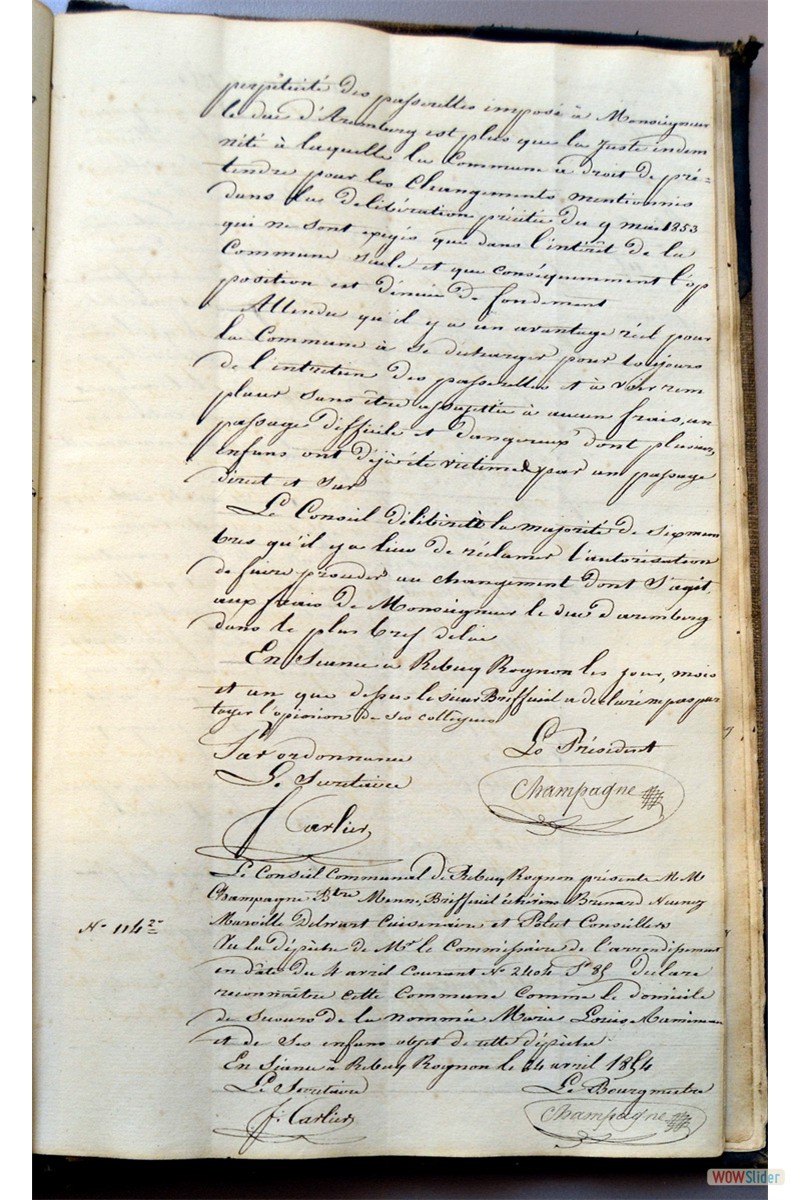 perpétuité des passerelles imposé à Monseigneur
le duc d'Aremberg est plus que la juste indem
nité à laquelle la Commune a droit de pré=
tendre pour les changements mentionnés
dans la délibération précitée du 9 mai 1853
qui ne sont exigés que dans l'intérêt de la
Commune seule et que conséquemment l'op
position est dénuée de fondement
Attendu qu'il y a un avantage réel pour
la Commune à se décharger pour toujours
de l'entretien des passerelles et à voir rem
placer sans être assujettie à aucun frais, un
passage difficile et dangereux dont plusieurs
enfans ont déjà été victimes par un passage
direct et sur
Le Conseil délibère à la majorité de six mem
bres qu'il y a lieu de réclamer l'autorisation
de faire procéder au changement dont s'agit
aux frais de Monseigneur le duc d'aremberg
dans le plus bref délai
En Séance à Rebecq Rognon les jour, mois
et an que dessus le sieur Briffeuil a déclaré ne pas par
tager l'opinion de ses collegues
Par ordonnance
Le Secrétaire
J. Carlier
Le Président
Champagne
Le Conseil Communal de Rebecq Rognon présents M M
Champagne Bgtre Briffeuil échevins Brunard
Marville Delwart Cuisenaire et Polet Consrs
N° 114
Vu la dépêche de Mr le Commissaire de l'arrondissement
en date du 4 avril courant N° 2404 déclare
reconnaître cette Commune comme le domicile
de secours de la nommée Marie Louise
et de ses enfans objet de cette dépêche
En Séance à Rebecq Rognon le 24 avril 1854
Le Secrétaire
J. Carlier
Le Bourgmestre
Champagne
WOWSlider